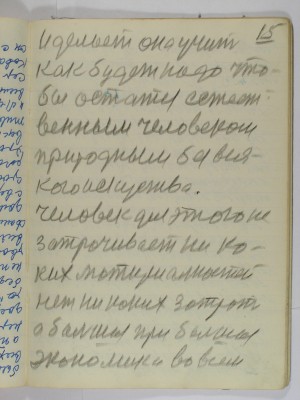 15
и делает она учит
как будет надо что-
бы остатся естест-
венным человеком
природным без вся-
кого искуства.
Человек для этого не
затрочивает ни ко-
ких матириалностей
нет никоких затрот
а балшая при балшая
экономика во всем